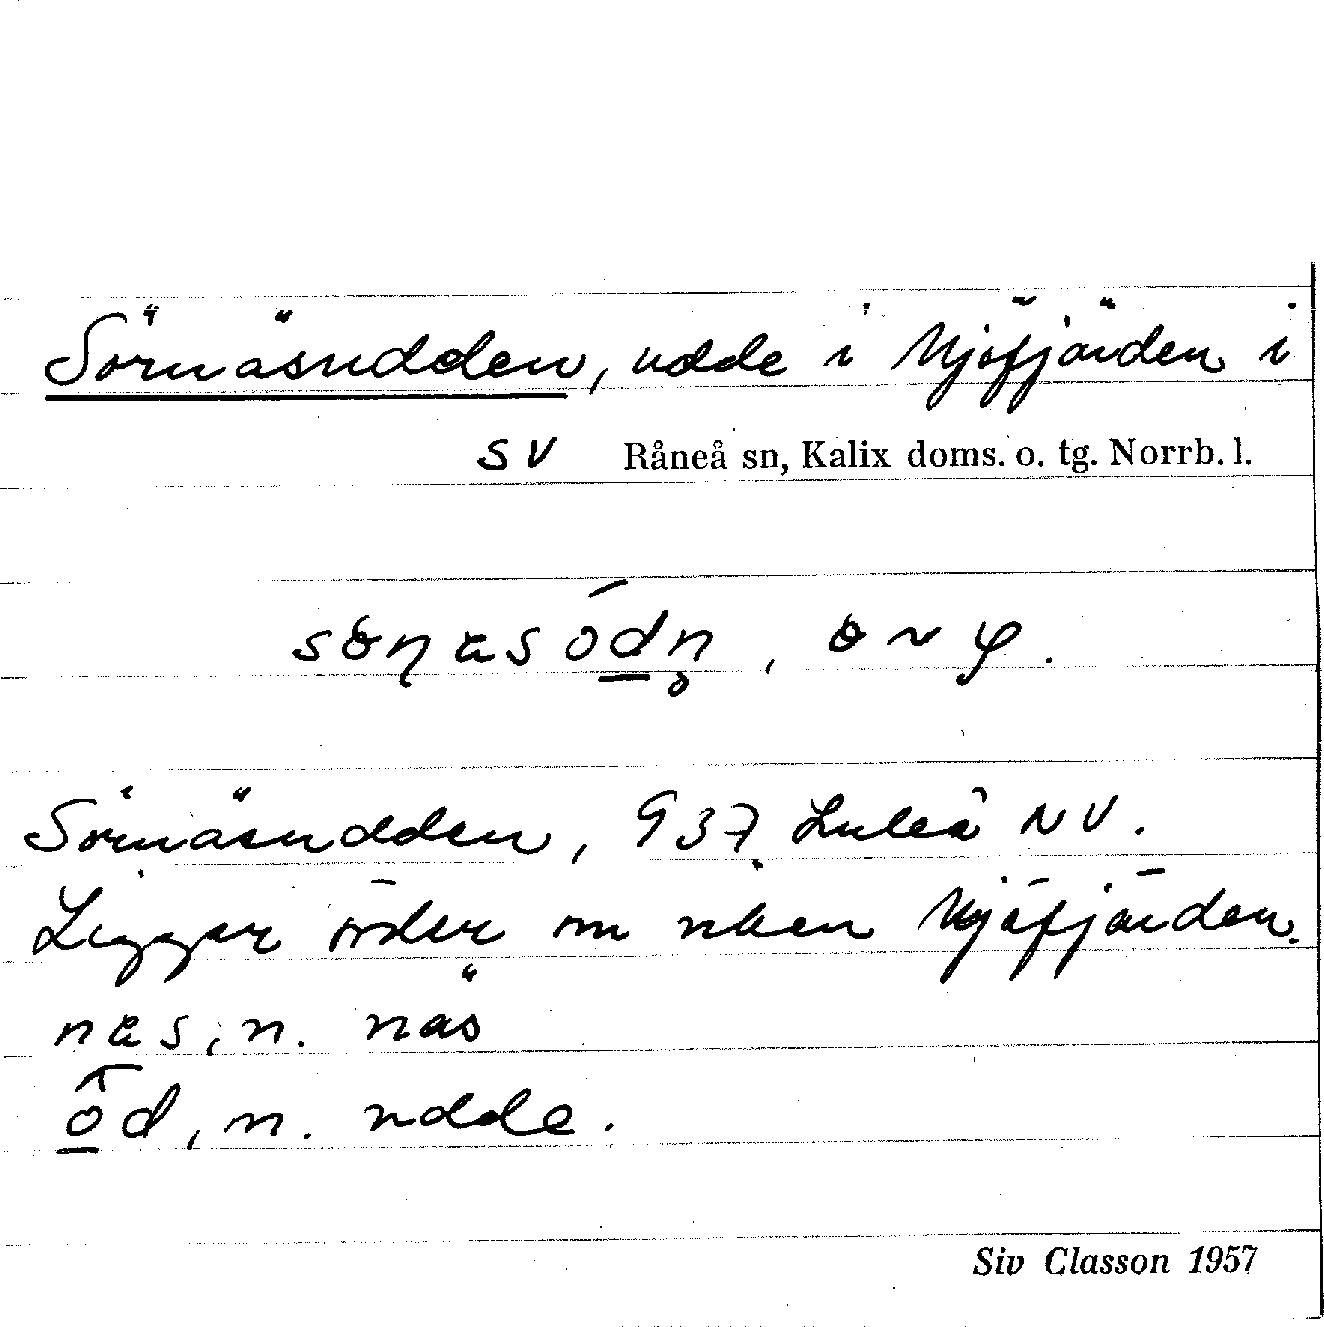 Sörnäsudden, udde i Mjöfjärden i
SV Råneå sn, Kalix doms. o. tg. Norrb. l.
Sörnäsudden, 937 Luleå NV.
Ligger söder om viken Mjöfjärden.
næs, n. näs
ōd, m. udde.
Siv Classon 1957